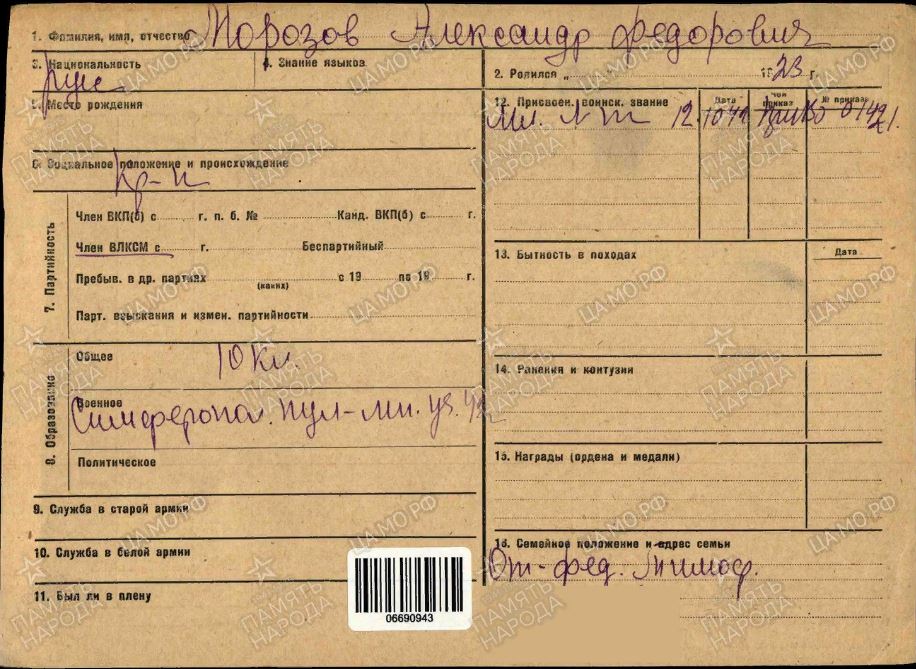 1. Фамилия, имя, отчество Морозов Александр Федорович
3. Национальность
рус
4. Знание языков
2. Родился „ 1923 г.
5. Место рождения
6. Социальное положение и происхождение
Кр-н
7. Партийность
Член ВКП(б) с г. п. б. № Канд. ВКП(б) с г.
Член ВЛКСМ с г. Беспартийный
Пребыв. в др. партиях с 19 по 19 г.
(каких)
Парт. взыскания и измен. партийности
8. Образование
Общее 10 кл.
Военное
Симферопол. пул-мин. уч. 42
Политическое
9. Служба в старой армии
10. Служба в белой армии
11. Был ли в плену
12. Присвоен. воинск. звание Дата Чей приказ № приказа
Мл. л-т 12.10.41 0149
13. Бытность в походах Дата
14. Ранения и контузии
15. Награды (ордена и медали)
16. Семейное положение и адрес семьи
От-фед. Тимоф.
06690943
ПАМЯТЬ НАРОДА
ЦАМО.РФ